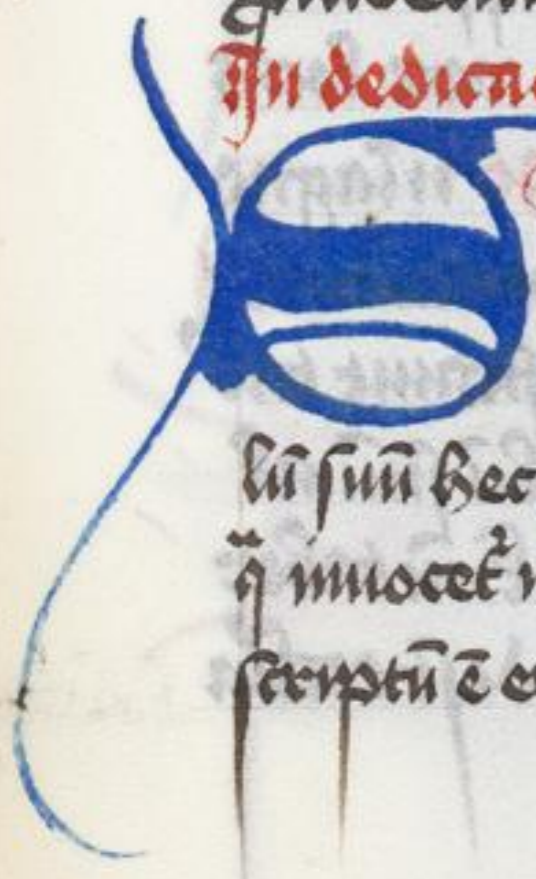 In dedica
S
lū suū hec
q̄ inuocet᷑
scriptū ē e